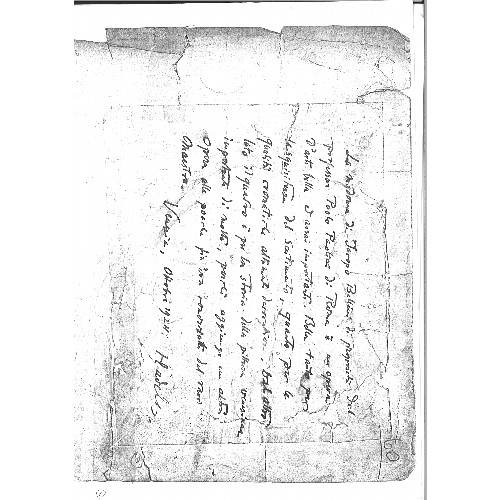 La Madonna di Jacopo Bellini di proprietà del
professor Paolo Paolini di Roma è un opera
d'arte bella ed assai importante. Bella tanto per
la squisitezza del sentimento, quanto per le
qualità cromatiche altamente decorative. Dal altro
lato il quadro è per la storia della pittura veneziana
importante di molto, perchè aggiunge un altra
opera alle poche fin ora conosciute del raro
Maestro. Venezia, Ottobre 1924. Hadeln